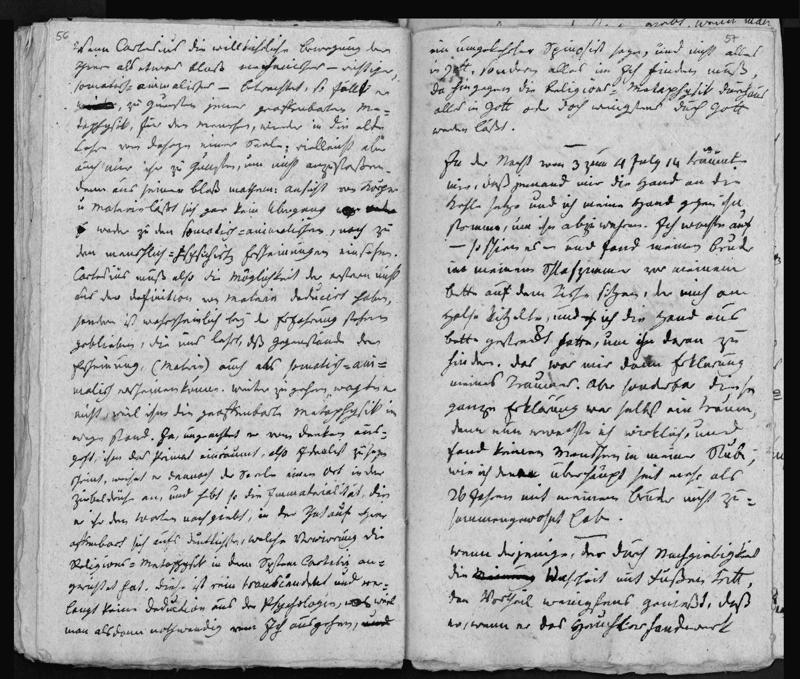 56
Wenn Cartesius die willkührliche Bewegung der
Thiere als etwas bloß mechanisches — richtiger,
somatisch=animalisches — betrachtet, so fällt er
zu Gunsten jener Me-
taphysik, für den Menschen, wieder in die alte
Lehre vom einer Seele; vielleicht aber
auch nur ihr zu Gunsten, um nicht anzustoßen.
denn aus seiner bloß mathem: Ansicht von Körper
u Materie läßt sich gar kein Übergang
weder zu den somatisch=animalischen, noch zu
den menschlich=psychischen Erscheinungen einsehen.
Cartesius muß also die Möglichkeit der erstern nicht
aus der Definition von Materie deducirt haben,
sondern ist wahrscheinlich bey der Erfahrung stehen
geblieben, die uns lehrt, daß Gegenstände der
Erscheinung, (Materie) auch als somatisch=ani=
malisch erscheinen können. Weiter zu gehen wagte er
nicht, weil ihm die Metaphysik im
Wege stand. Ja, ungeachtet er vom Denken aus-
geht, ihm das Primat einräumt, also Idealist zu seyn
scheint, weiset er dennoch der Seele einen Ort in der
Zirbeldrüse an, und hebt so die Immaterialität, die
er ihr den Worten nach giebt, in der That auf. Hier
offenbart sich aufs deutlichste, welche Verwirrung die
Religions=Metaphysik in dem System Cartesii an-
gerichtet hat. Diese ist rein transcendent und ver-
langt keine Deduction aus der Psychologie, weil
man alsdann nothwendig vom Ich ausgehen, und
57
ein umgekehrter Spinozist seyn, und nicht alles
in Gott, sondern alles im Ich finden muß,
da hingegen die Religions=Metaphysik durchaus
alles in Gott oder doch wenigstens durch Gott
werden läßt.
In der Nacht vom 3 zum 4 July 14 träumte
mir, daß jemand mir die Hand an die
Kehle setze und ich meine Hand gegen ihn
stemme, um ihn abzuwehren. Ich wachte auf
— so schien es — und fand meinen Bruder
in meinem Schlafzimmer vor meinem
Bette auf dem Tische sitzen, der mich am
Halse kitzelte, und ich die Hand aus
Bette gestreckt hatte, um ihn daran zu
hindern. Das war mir dann Erklärung
meines Traumes. Aber sonderbar diese
ganze Erklärung war selbst ein Traum,
denn nun erwachte ich wirklich, und
fand keinen Menschen in meiner Stube,
wie ich denn überhaupt seit mehr als
26 Jahren mit meinem Bruder nicht zu=
sammengewohnt habe.
Wenn derjenige, der durch Nachgiebigkeit
die Wahrheit mit Füßen tritt,
den Vortheil wenigstens genießt, daß
er, wenn er das